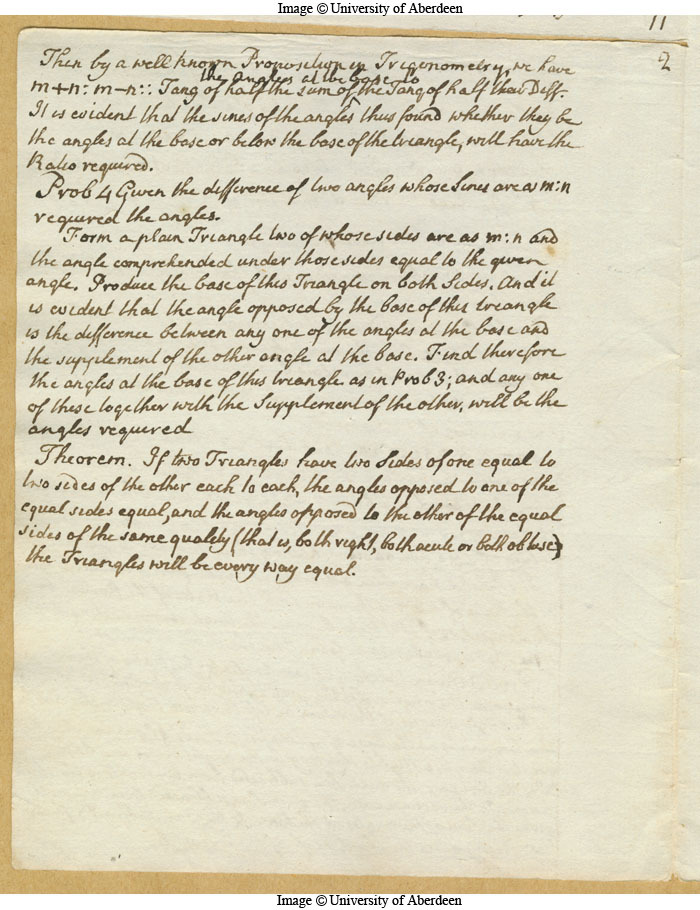 Image © University of Aberdeen
11
2
Then by a well known Proposition in Trigonometry, we have
the angles at the base to
m+n: m−n:: Tang of half the sum of the Tang of half their Diff.
It is evident that the sines of the angles thus found whether they be
the angles at the base or below the base of the triangle, will have the
Ratio required.
Prob 4 Given the difference of two angles whose Sines are as m:n
required the angles.
Form a plain Triangle two of whose sides are as m:n and
the angle comprehended under those sides equal to the given
angle. Produce the base of this Triangle on both Sides. And it
is evident that the angle opposed by the base of this triangle
is the difference between any one of the angles at the base and
the supplement of the other angle at the base. Find therefore
the angles at the base of this triangle as in Prob 3; and any one
of these together with the Supplement of the other, will be the
angles required
Theorem. If two Triangles have two Sides of one equal to
two sides of the other each to each, the angles opposed to one of the
equal sides equal, and the angles opposed to the other of the equal
sides of the same quality (that is, both right, both acute or both obtuse)
the Triangles will be every way equal.
Image © University of Aberdeen